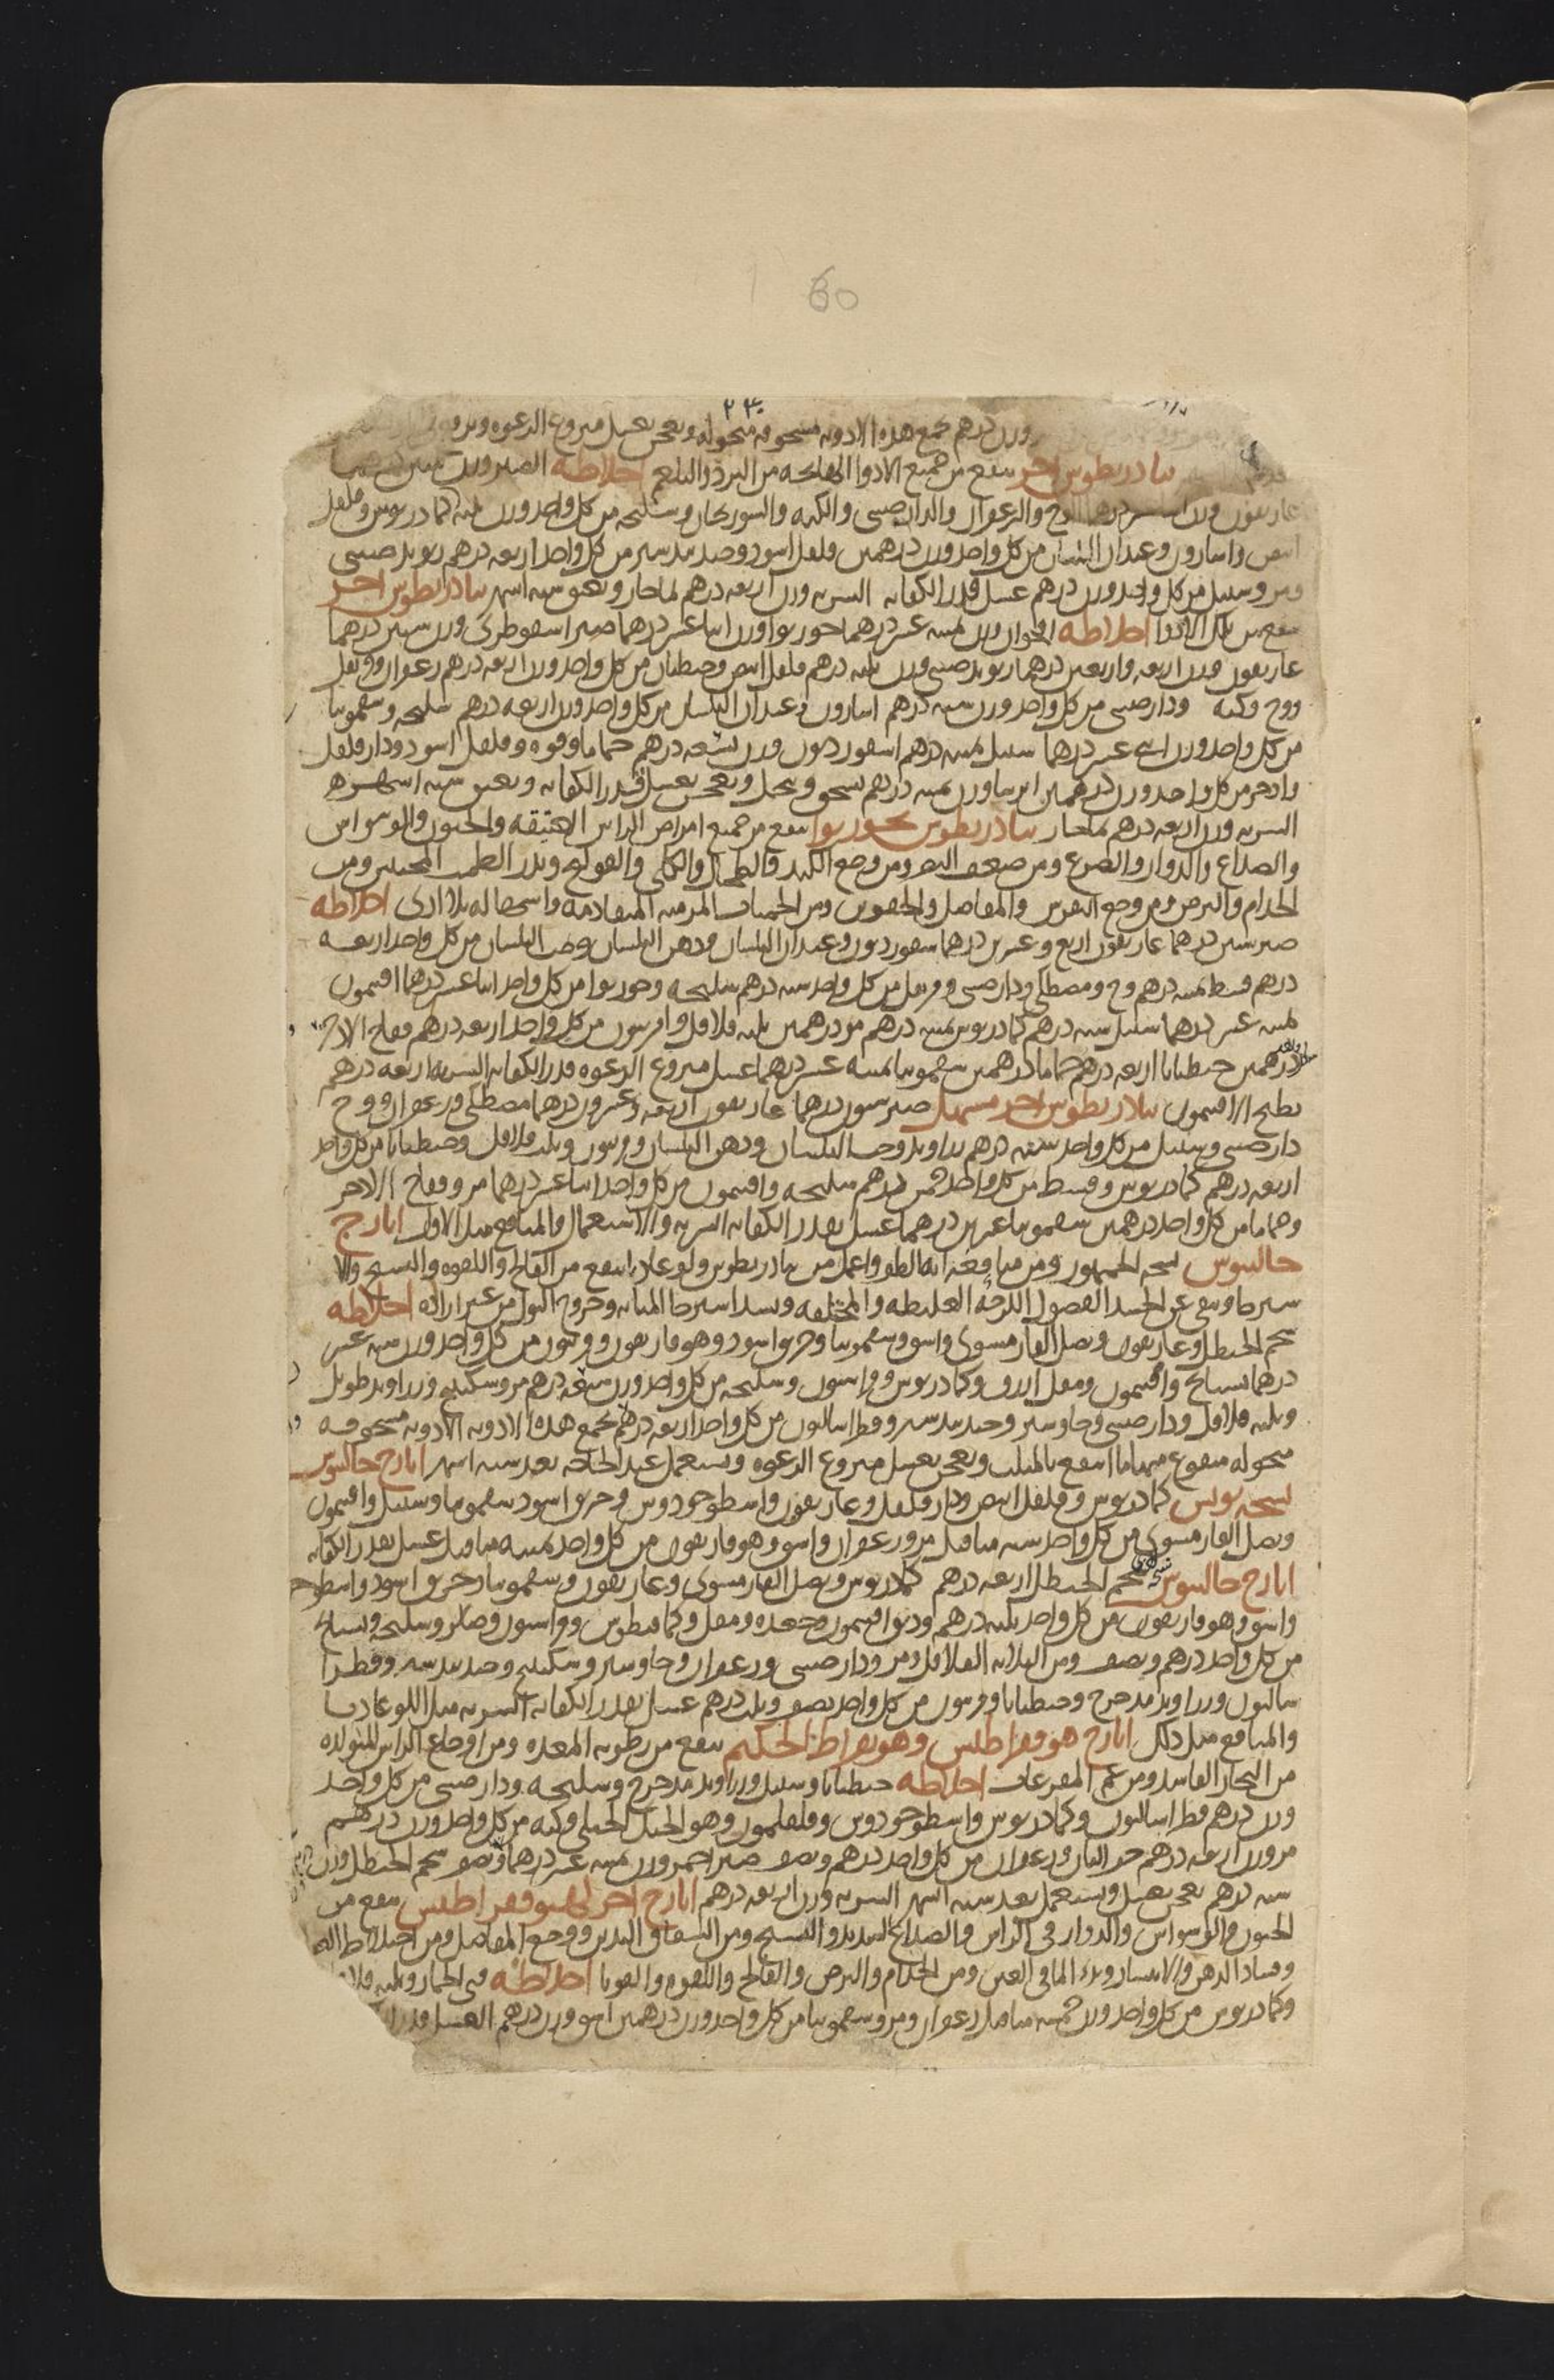 60
٢٣٠
وزن درهم تجمع هذه الادويه مسحوقه منخوله وتعجن بعسل منزوع الرغوه
تيادريطوس اخر ينفع من جميع الادوا الهايجه من البرد والبلغم اخلاطه الصبر وزن ستين درهما
غاريقون وزن درهما الوج والزعفران والدارصيني والكيه والسورنجان وسليخه من كل واحد وزن كمادريوس وفلفل
ابيض واسارون وعيدان البلسان من كل واحد وزن درهمين فلفل اسود وجندبيدستر من كل واحد اربعه درهم ريوند صيني
ومر وسنبل من كل واحد وزن درهم عسل قدر الكفايه الشربه وزن اربعه درهم بماحار ويعتق سته اشهر تيادريطوس اخر
ينفع من تلك الادوا اخلاطه وزن عشر درهما جوزبوا وزن اثنا عشر درهما صبر اسقوطري وزن ستين درهما
غاريقون وزن اربعه واربعين درهما ريوند صيني وزن ثلثه درهم فلفل ابيض وجنطيان من كل واحد وزن اربعه درهم زعفران
ووج وكيه ودارصيني من كل واحد وزن سته درهم اسارون وعيدان البلسان من كل واحد وزن اربعه درهم سليخه وسقمونيا
من كل واحد وزن اثني عشر درهما سنبل درهم اسقورديون وزن درهم حماما وفوه وفلفل اسود ودارفلفل
واذخر من كل واحد وزن درهمين ايرسا وزن درهم يسحق وينخل ويعجن بعسل قدر الكفايه ويعتق سته اشهر
الشربه وزن اربعه درهم بماحار تيادريطوس بجوزبوا ينفع من جميع امراض الراس العتيقه والجنون والوسواس
والصداع والدوار والصرع ومن ضعف البصر ومن وجع الكبد والطحال والكلى والقولنج ويدر الطمث المحتبس ومن
الجذام والبرص ومن وجع النقرس والمفاصل والحقوين ومن الحميات المزمنه المتقادمه واسهاله بلا اذى اخلاطه
صبر ستين درهما غاريقون اربع وعشرين درهما سقورديون وعيدان البلسان ودهن البلسان وحب البلسان من كل واحد اربعه
درهم قسط درهم وج ومصطكى ودارصيني وقرنفل من كل واحد سته درهم سليخه وجوزبوا من كل واحد اثنا عشر درهما افتيمون
عشر درهما سنبل سته درهم كمادريوس درهم مو درهمين ثلثه فلافل وافربيون من كل واحد اربعه درهم فقاح الاذخر
درهمين جنطيانا اربعه درهم حماما درهمين سقمونيا عشر درهما عسل منزوع الرغوه قدر الكفايه الشربه اربعه درهم
بطبخ الافتيمون تيادريطوس اخر مسهل صبر ستون درهما غاريقون اربعه وعشرون درهما مصطكى وزعفران ووج
دارصيني وسنبل من كل واحد سته درهم راوند وحب البلسان ودهن البلسان وفربيون وثلثه فلافل وجنطيانا من كل واحد
اربعه درهم كمادريوس وقسط من كل واحد خمس درهم سليخه وافتيمون من كل واحد اثنا عشر درهما مر وفقاح الاذخر
وحماما من كل واحد درهمين سقمونيا عشرين درهما عسل بقدر الكفايه الشربه والاستعمال والمنافع مثل الاول ايارج
جالينوس نسخه الجمهور ومن منافعه انه الطف واعمل من تيادريطوس ولوغاديا ينفع من الفالج واللقوه والتشنج والا
سترخا وينقي عن الجسد الفضول اللزجه الغليظه والمختلفه ويشد استرخا المثانه وخروج البول من غير اراده اخلاطه
شحم الحنظل وغاريقون وبصل الفار مشوي واشق وسقمونيا وخربق اسود وهوفاريقون وفربيون من كل واحد وزن سته عشر
درهما بسبايج وافتيمون ومقل ازرق وكمادريوس وفراسيون وسليخه من كل واحد وزن درهم مر وسكبينج وزراوند طويل
وثلثه فلافل ودارصيني وجاوشير وجندبيدستر وفطراساليون من كل واحد اربعه درهم تجمع هذه الادويه الادويه مسحوقه
منخوله منقوع منها ما انتقع بالمثلث ويعجن بعسل منزوع الرغوه ويستعمل عند الحاجه بعد سته اشهر ايارج جالينوس
نسخه بولس كمادريوس وفلفل ابيض ودارفلفل وغاريقون واسطوخودوس وخربق اسود سقمونيا وسنبل وافتيمون
وبصل الفار مشوي من كل واحد سته مثاقيل مر وزعفران واشق وهوفاريقون من كل واحد مثاقيل عسل بقدر الكفايه
ايارج جالينوس شحم الحنظل اربعه درهم كمادريوس وبصل الفار مشوي وغاريقون وسقمونيا وخربق اسود واسطوخ
واشق وهوفاريقون من كل واحد ثلثه درهم ودبق افتيمون وجعده ومقل وكمافيطوس وفراسيون وسليخه وبسبايج
من كل واحد درهم ونصف ومن الثلاثه الفلافل ومر ودارصيني وزعفران وجاوشير وسكبينج وجندبيدستر وفطرا
ساليون وزراوند مدحرج وجنطيانا وفربيون من كل واحد نصف وثلث درهم عسل بقدر الكفايه الشربه مثل اللوغاديا
والمنافع مثل ذلك ايارج هوفقراطلس وهو بقراط الحكيم ينفع من رطوبه المعده ومن اوجاع الراس المتولده
من البخار الفاسد ومن غم المفرعات اخلاطه جنطيانا وسنبل وزراوند مدحرج وسليخه ودارصيني من كل واحد
وزن درهم فطراساليون وكمادريوس واسطوخودوس وفلفلمون وهو الجبلي وكيه من كل واحد وزن درهم
مر وزن اربعه درهم حب البان وزعفران من كل واحد درهم ونصف صبر احمر وزن عشر درهما ونصف شحم الحنظل وزن
سته درهم يعجن بعسل ويستعمل بعد سته اشهر الشربه وزن اربعه درهم ايارج اخر لهوفقراطلس ينفع من
الجنون والوسواس والدوار في الراس والصداع الشديد والتشنج ومن الشقاق اليدين ووجع المفاصل ومن اختلاط
وفساد الذهن والانتشار وبدء الما في العين ومن الجذام والبرص والفالج واللقوه والقوبا اخلاطه قثى الحمار وثلثه
وكمادريوس من كل واحد وزن خمسه مثاقيل زعفران ومر وسقمونيا من كل واحد وزن درهمين اشق وزن درهم العسل قدر